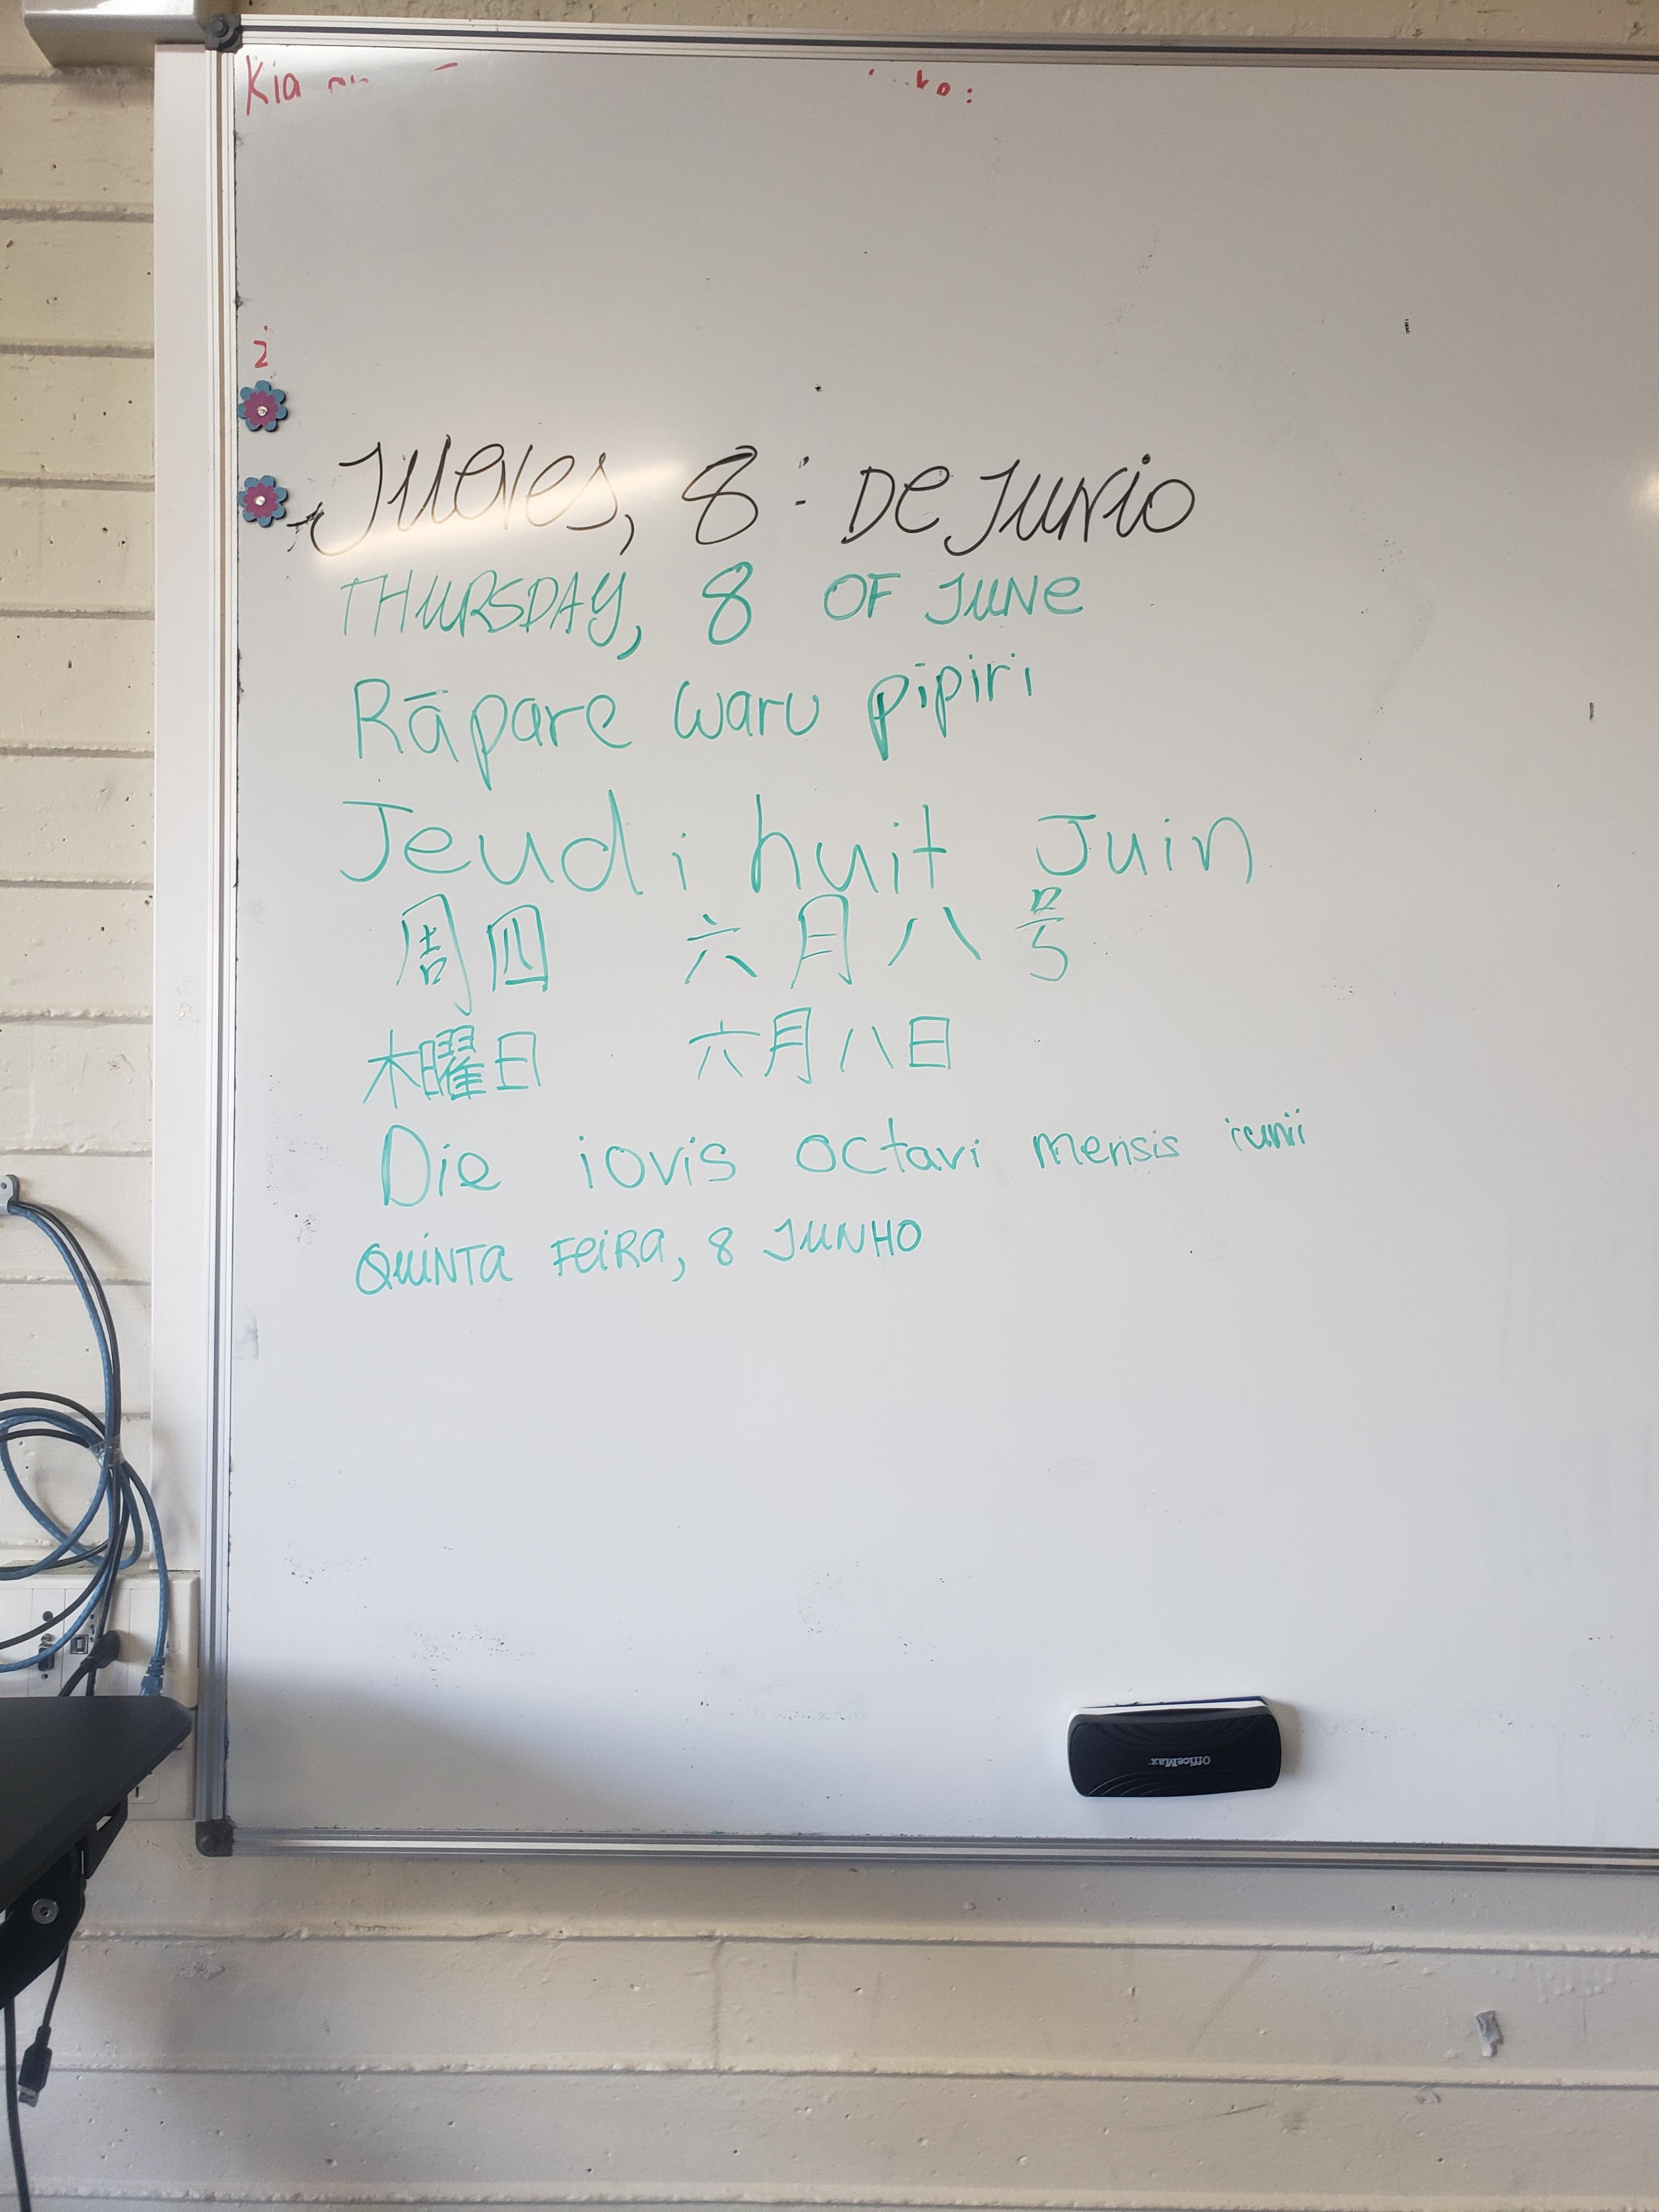 Kia
2
Jueves, 8 : De Junio
THURSDAY, 8 OF JUNe
Rāpare waru pipiri
Jeudi huit Juin
周四 六月八号
木曜日 六月八日
Die iovis octavi mensis iunii
QUINTa FeiRa, 8 JUNHO
OfficeMax